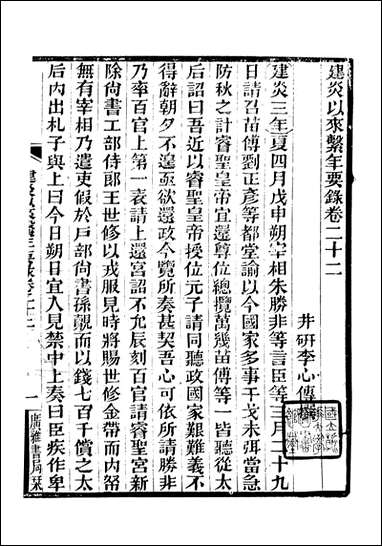 建炎以來繫年要錄卷二十二
井研李心傳撰
建炎三年夏四月戊申朔宰相朱勝非等言臣等三月二十九
日請召苗傅劉正彥等都堂諭以今國家多事干戈未弭當急
防秋之計睿聖皇帝宜還尊位總攬萬幾苗傅等一皆聽從太
后詔曰吾近以睿聖皇帝授位元子請同聽政國家艱難義不
得辭朝夕不遑亟欲還政今覽所奏甚契吾心可依所請勝非
乃率百官上第一表請上還宮詔不允辰刻百官請睿聖宮新
除尚書工部侍郎王世修以戎服見時將賜世修金帶而內帑
無有宰相乃遣吏假於戶部尚書孫覿而以錢七百千償之太
后內出札子與上曰今日朔日宜入見禁中上奏曰臣疾作卑
建炎以來繫年要錄卷二十二
一
廣雅書局栞